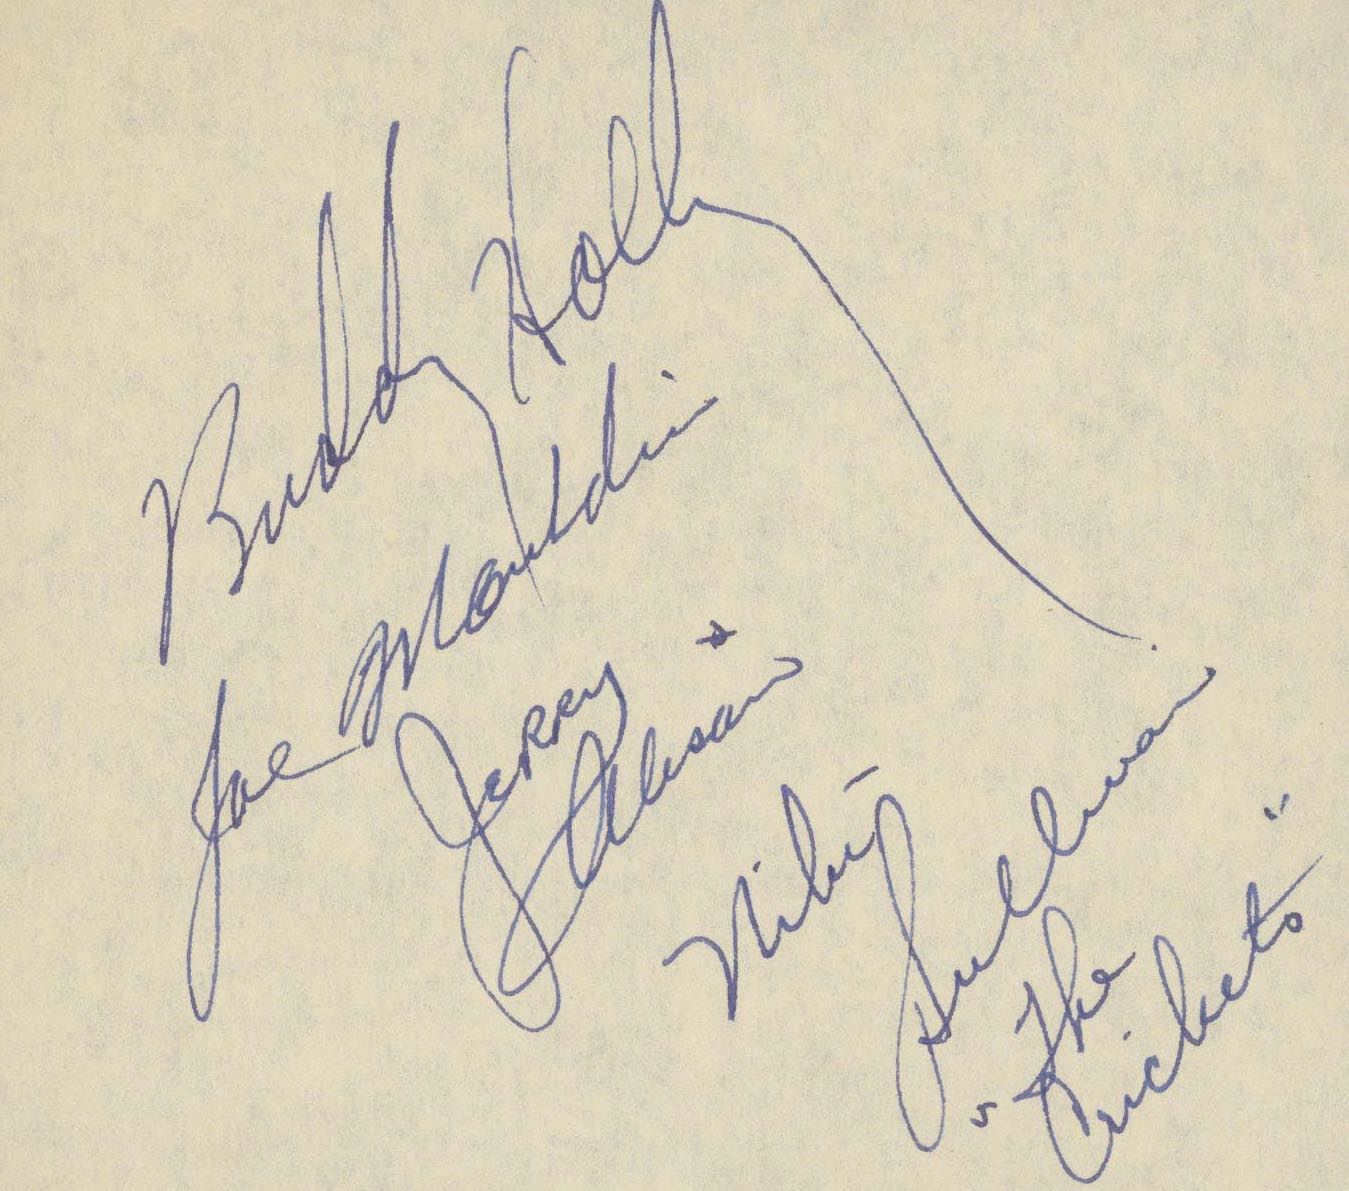 Buddy Holly
Joe Mauldin
Jerry
Allison
Niki
Sullivan
"The
Crickets"